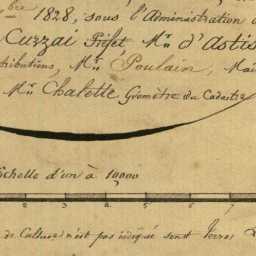 bre 1828, sous l'Administration d
Cuzzai Préfet Mr. d'Astis
tributions, Mr. Poulain, Mai
Mr. Chalette Géomètre du Cadastre
Echelle d'un à 10000
2 3 4 5 6 7
de Culture n'est pas indiqué sont Terres